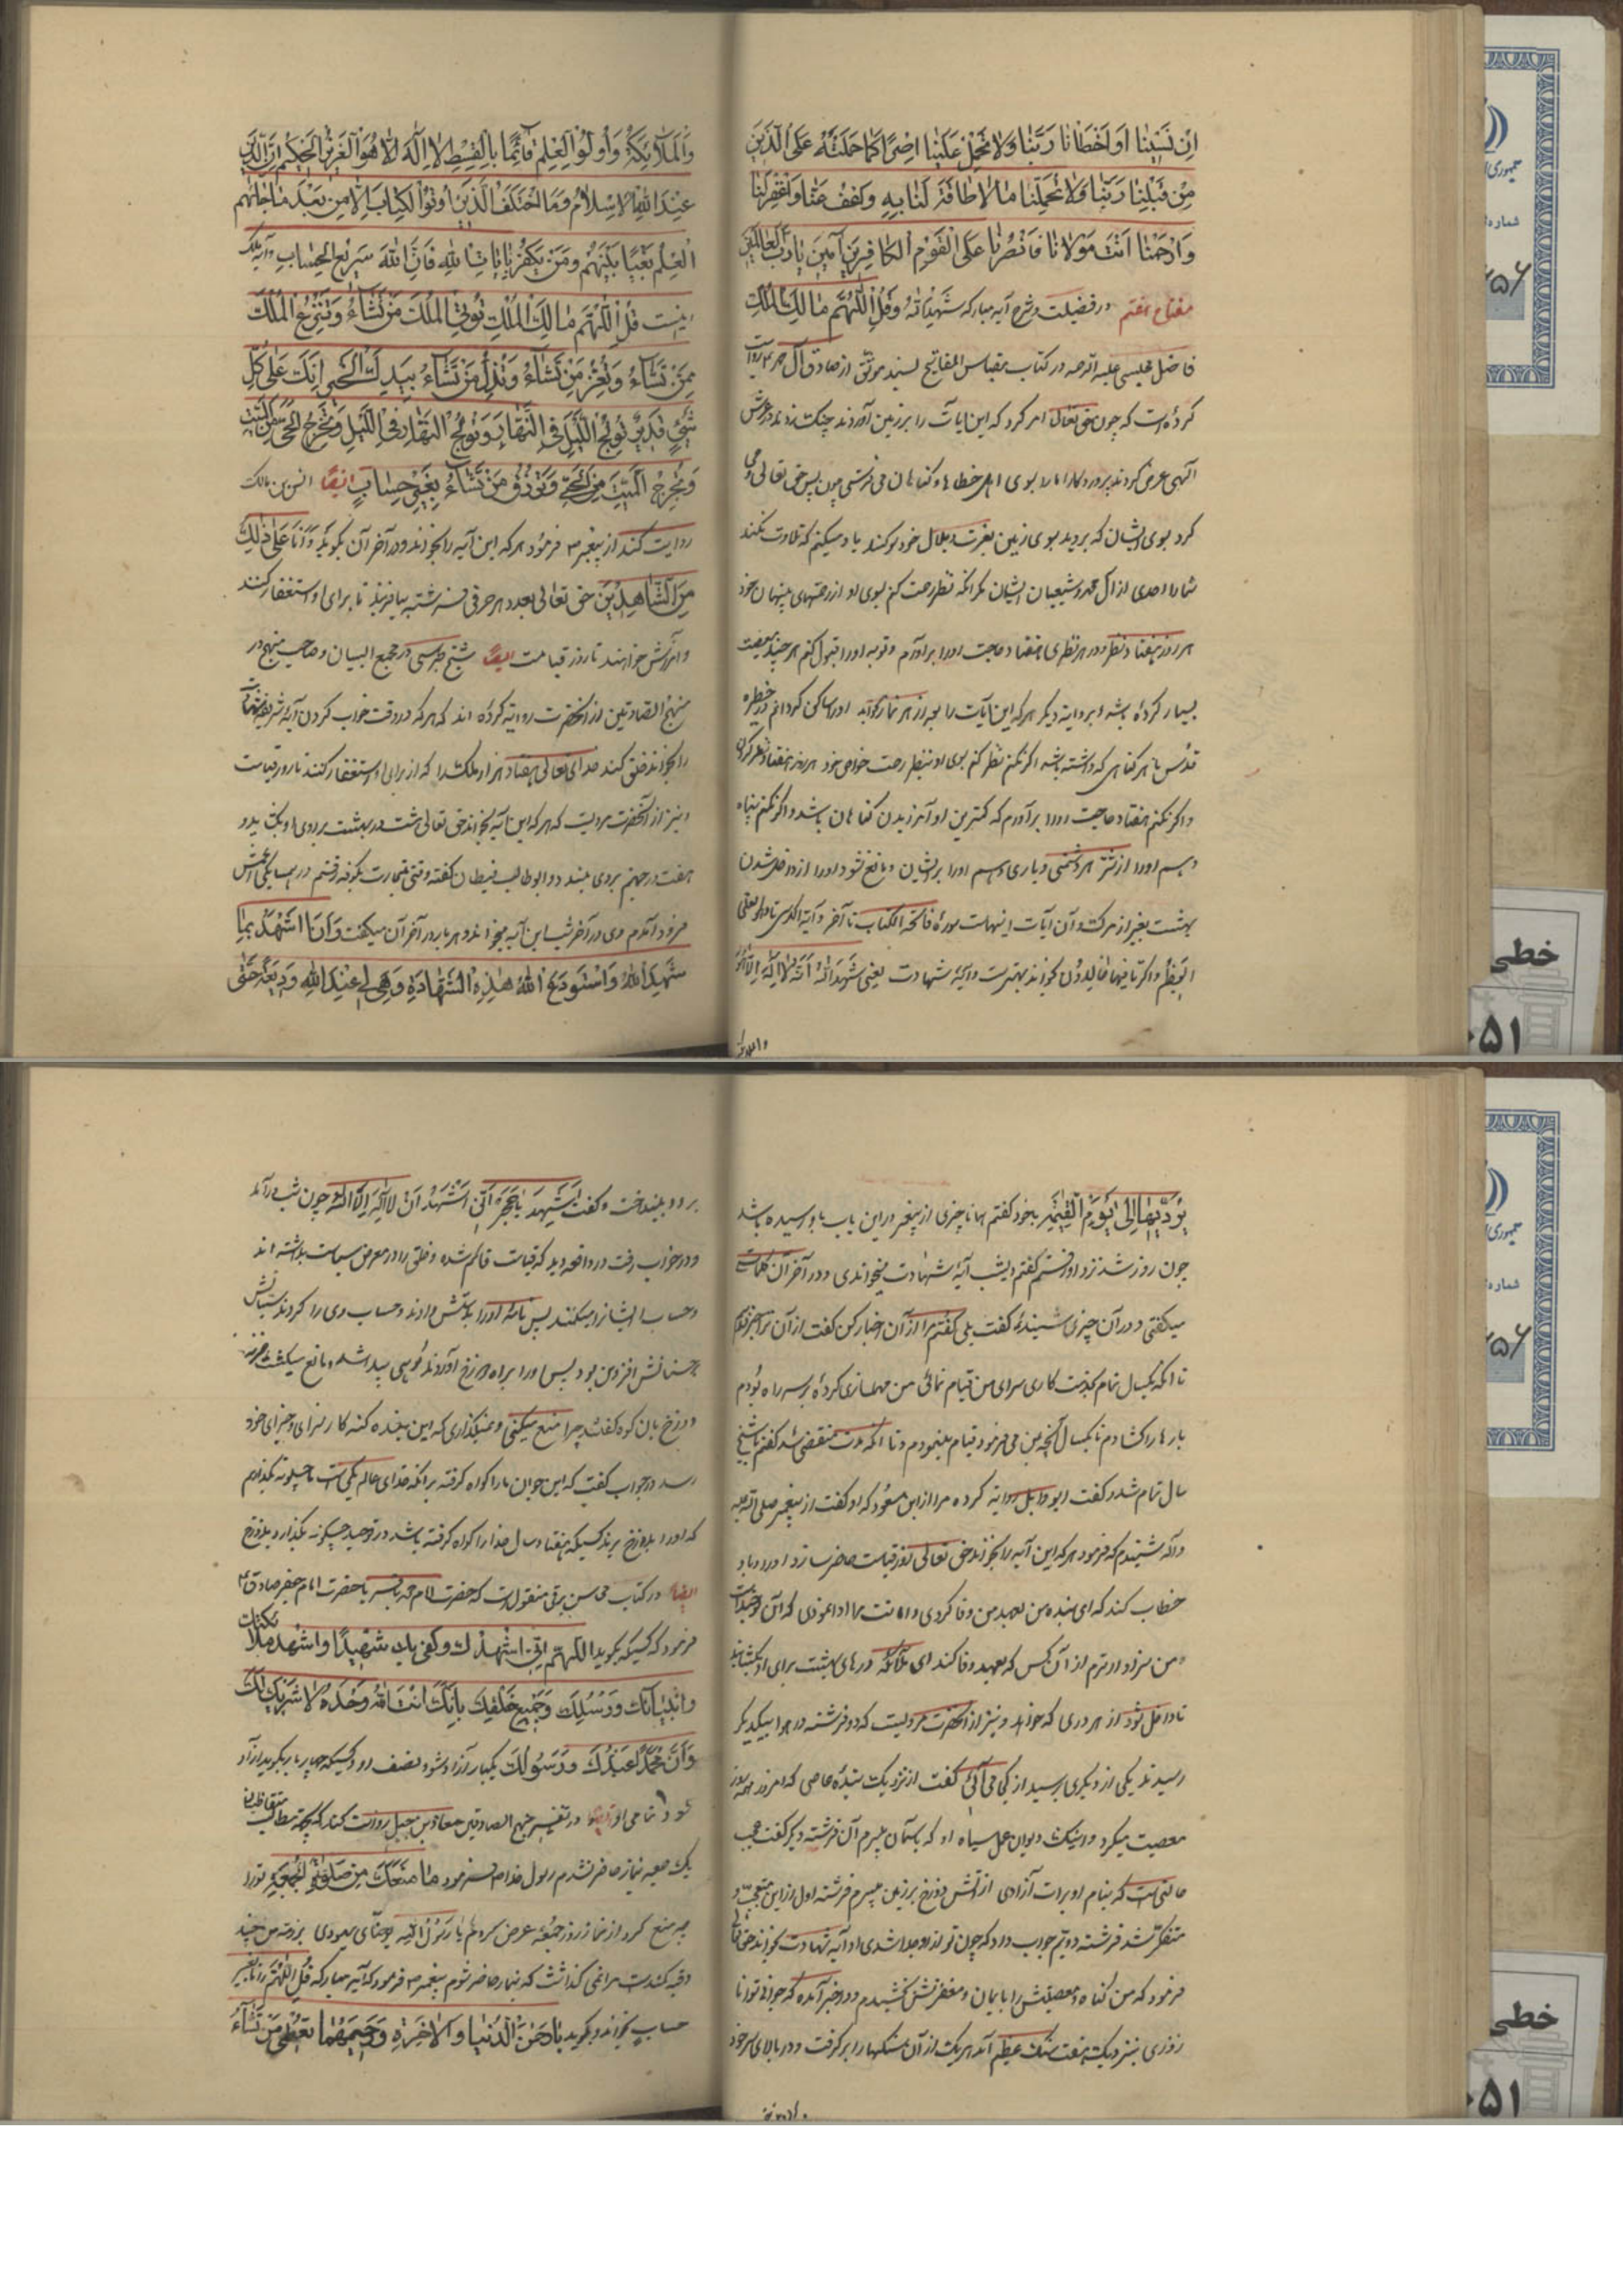 ان نسینا او اخطانا ربنا ولا تحمل علینا اصرا کما حملته علی الذین
من قبلنا ربنا ولا تحملنا ما لا طاقة لنا به وعف عنا واغفر لنا
وارحمنا انت مولانا فانصرنا علی القوم الکافرین آمین یا رب العالمین
مفتاح هفتم در فضیلت و شرح آیه مبارکه شهد الله وقل اللهم مالک الملک
فاضل مجلسی علیه الرحمه در کتاب مقباس المفاتیح بسند موثق از صادق آل محمد روایت
کرده است که چون حق تعالی امر کرد که این ایات را بر زمین آوردند چنک زدند در عرش
الهی عرض کردند پروردکارا ما را بسوی اهل خطاها و کناهان می فرستی پس حق تعالی وحی
کرد بسوی ایشان که بروید بسوی زمین بعزت و جلال خود سوکند یاد میکنم که تلاوت نکند
شما را احدی از آل محمد و شیعیان ایشان مکر آنکه نظر رحمت کنم بسوی او از رحمتهای پنهان خود
هر روز هفتاد نظر و در هر نظری هفتاد حاجت او را برآورم و توبه او را قبول کنم هر چند معصیت
بسیار کرده باشد و بروایت دیکر هر که این آیات را بعد از هر نماز بخواند او را ساکن کردانم در حظیره
قدس با هر کناهی که داشته باشد اکر نکنم نظر کنم بسوی او بنظر رحمت خواص خود هر روز هفتاد نظر
واکر نکنم هفتاد حاجت او را برآورم که کمترین او آمرزیدن کناهان باشد و اکر نکنم پناه
دهم او را از شر هر دشمنی و یاری دهم او را بر ایشان و مانع نشود او را از داخل شدن
بهشت بغیر از مرک و آن آیات اینهاست سوره فاتحة الکتاب تا آخر و آیة الکرسی تا وهو العلی
العظیم و اکر تا فیها خالدون بخواند بهتر است و آیه شهادت یعنی شهد الله انه لا اله الا هو
والملائکة واولوا العلم قائما بالقسط لا اله الا هو العزیز الحکیم ان الدین
عند الله الاسلام وما اختلف الذین اوتوا الکتاب الا من بعد ما جائهم
العلم بغیا بینهم ومن یکفر بایات الله فان الله سریع الحساب و آیه ملک
اینست قل اللهم مالک الملک توتی الملک من تشاء وتنزع الملک
ممن تشاء وتعز من تشاء وتذل من تشاء بیدک الخیر انک علی کل
شیء قدیر تولج اللیل فی النهار وتولج النهار فی اللیل وتخرج الحی من المیت
وتخرج المیت من الحی وترزق من تشاء بغیر حساب ایضا انس بن مالک
روایت کند از پیغمبر ص فرمود هر که این آیه را بخواند و در آخر آن بکوید وانا علی ذلک
من الشاهدین حق تعالی بعدد هر حرفی فرشته بیافریند تا برای او استغفار کنند
و آمرزش خواهند تا روز قیامت ایضا شیخ طبرسی در مجمع البیان و صاحب منهج در
منهج الصادقین از آنحضرت روایت کرده اند که هر که در وقت خواب کردن آیه شریفه شهادت
را بخواند خلق کند خدای تعالی هفتاد هزار ملک را که از برای او استغفار کنند تا روز قیامت
و نیز از آنحضرت مرویست که هر که این آیه بخواند حق تعالی هشت در بهشت بر روی او بکشاید و
هفت در جهنم بروی ببندد و ابوطالب قیطان کفته وقتی بتجارت بکوفه رفتم در همسایکی اعمش
فرود آمدم وی در آخر شب این آیه میخواند و هر بار در آخر آن میکفت وانا اشهد بما
شهد الله واستودع الله هذه الشهادة وهی لی عند الله ودیعة حتی
یؤدیها الی یوم القیمة با خود کفتم همانا چیزی از پیغمبر در این باب باو رسیده باشد
چون روز شد نزد او رفتم کفتم دیشب آیه شهادت میخواندی و در آخر آن کلمات
میکفتی و در آن چیزی شنیده کفت بلی کفتم مرا از آن اخبار کن کفت از آن ترا خبر ندهم
تا آنکه یکسال تمام بخدمت کاری سرای من قیام نمائی من مهمانی کرده بر سر راه بودم
بارها را کشادم تا یکسال آنچه بمن می فرمود قیام مینمودم و تا آنکه مدت منقضی شد کفتم یا شیخ
سال تمام شد کفت ابو وایل روایت کرده مرا از ابن مسعود که او کفت از پیغمبر صلی الله علیه
وآله شنیدم که فرمود هر که این آیه را بخواند حق تعالی در روز قیامت حاضر سازد او را و با او
خطاب کند که ای بنده من بعهد من وفا کردی و امانت مرا ادا نمودی که آن توحید است
و من سزاوارترم از آن کس که بعهد وفا کند ای ملائکه درهای بهشت برای او بکشایید
تا داخل شود از هر دری که خواهد و نیز از آنحضرت مرویست که دو فرشته در هوا بیکدیکر
رسیدند یکی از دیکری پرسید از کجا می آئی کفت از نزدیک بنده عاصی که امروز همه روز
معصیت میکرد و اینک دیوان عمل سیاه او که بآسمان میبرم آن فرشته دیکر کفت عجب
حالتی است که بنام او برات آزادی از آتش دوزخ بر زمین میبرم فرشته اول از این متعجب و
متفکر شد فرشته دویم جواب داد که چون تو از او جدا شدی او آیه شهادت بخواند حق تعالی
فرمود که من کناه و معصیتش را بایمان و مغفرتش بخشیدم و در خبر آمده که جوانی توانا
روزی بنزدیک هفت سنک عظیم آمد هر یک از آن سنکها را برکرفت و در بالای سر خود
برد و بینداخت و کفت اشهد یا حجر انی اشهد ان لا اله الا الله چون شب درآمد
و در خواب رفت در واقعه دید که قیامت قائم شده و خلق را در معرض سیاست بداشته اند
و حساب ایشانرا میکنند پس نامه او را بدستش دادند و حساب وی را کردند سیئاتش
بر حسناتش افزون بود پس او را براه دوزخ آوردند کوهی پیدا شد و مانع میکشت خزنه
دوزخ بآن کوه کفت چرا منع میکنی و نمیکذاری که این بنده کنه کار بسزای و جزای خود
رسد در جواب کفت که این جوان ما را کواه کرفته برآنکه خدای عالم یکی است ما چکونه بکذاریم
که او را بدوزخ برند کسیکه هفتاد سال خدا را کواه کرفته باشد در توحید چکونه بکذارد بدوزخ
ایضا در کتاب محاسن برقی منقول است که حضرت امام محمد باقر یا حضرت امام جعفر صادق ع
فرمود که کسیکه بکوید اللهم انی اشهدک وکفی بک شهیدا واشهد ملائکتک
وانبیائک ورسلک وجمیع خلقک بانک انت الله وحدک لا شریک لک
وان محمدا عبدک ورسولک یکبار آزاد شود نصف او و کسیکه چهار بار بکوید آزاد
شود تمامی او ایضا در تفسیر منهج الصادقین معاذ بن جبل روایت کند که بجهة مطالبه متقاضیان
یک جمعه بنماز حاضر نشدم رسول خدا ص فرمود ما منعک من صلوة الجمعة تو را
چه منع کرد از نماز روز جمعه عرض کردم یا رسول الله یوحنای یهودی بر ذمه من چند
وقیه کندم مرا نمی کذاشت که بنماز حاضر شوم پیغمبر ص فرمود که آیه مبارکه قل اللهم را تا بغیر
حساب بخواند و بکوید یا رحمن الدنیا والاخرة ورحیمهما تعطی من تشاء
خطی